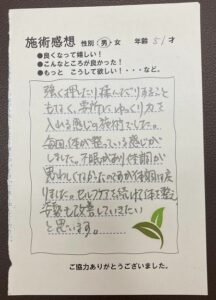 施術感想 性別:男・女 年齢 51才
●良くなって嬉しい!
●こんなところが良かった!
●もっと こうして欲しい!・・・など。
強く押したり揉んだりすること
もなく、実際にゆっくり力を
入れる感じの施術でした。
毎回、体が整っている感じが
しました。不眠があり体調が
思わしくなかったのですが体調は戻
りました。セルフケアを続けて体を整え
姿勢も改善していきたい
と思います。
ご協力ありがとうございました。